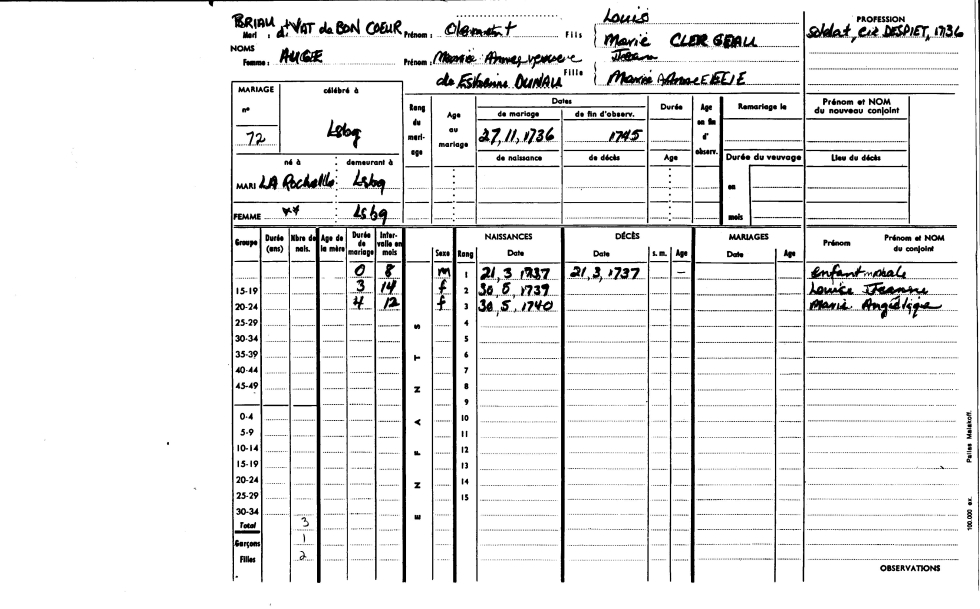 BRIAU d' VAT de BON COEUR Louis PROFESSION
Mari : Prénom : Fils Marie CLERGEAU Soldat, cie DESPIET, 1736
NOMS Jean
Femme : AUGE Prénom : Marie Anne, veuve Fille Marie Anne ELIE
de DUNAU
MARIAGE célébré à
n° 72 Lsbg
Rang du mariage Age au mariage Dates Durée Age en fin d'observ. Remariage le Prénom et NOM du nouveau conjoint
de mariage de fin d'observ.
27, 11, 1736 1745
de naissance de décès Age Durée du veuvage Lieu du décès
né à demeurant à
MARI LA Rochelle Lsbg en
FEMME ** Lsbg mois
Groupe Durée (ans) Nbre de nais. Age de la mère Durée de mariage Intervalle en mois Sexe Rang NAISSANCES Date DÉCÈS Date s. m. Age MARIAGES Date Age Prénom Prénom et NOM du conjoint
0 8 m 1 21, 3, 1737 21, 3, 1737 – enfant
15-19 3 14 f 2 30, 1739 Louise Jeanne
20-24 4 12 f 3 30, 5, 1740 Marie Angélique
25-29 4
30-34 5
35-39 6
40-44 7
45-49 8
9
0-4 10
5-9 11
10-14 12
15-19 13
20-24 14
25-29 15
30-34
Total 3
Garçons 1
Filles 2
ENFANTS
OBSERVATIONS
100.000 ex. Pallas Malakoff.